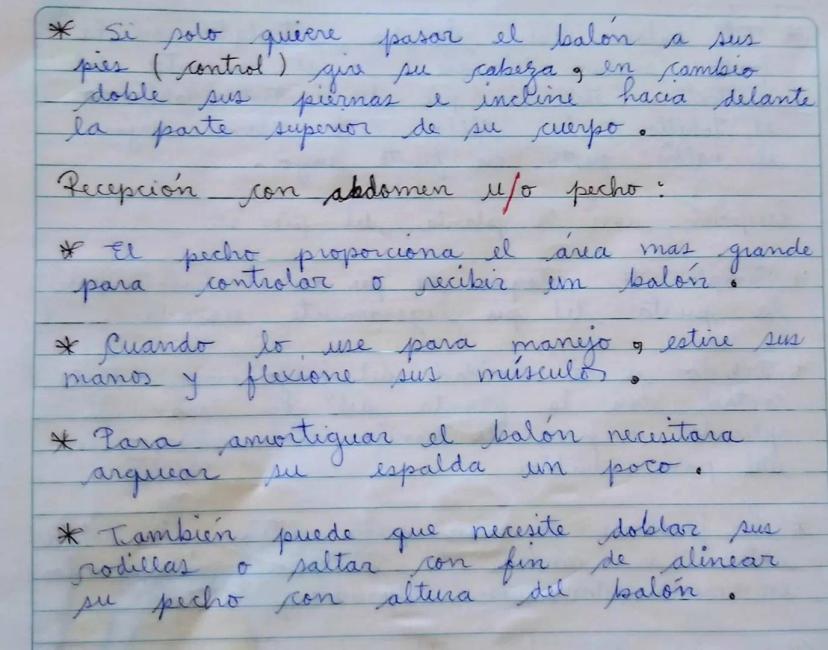 * Si solo quiere pasar el balón a sus
pies ( control ) gire su cabeza, en cambio
doble sus piernas e incline hacia delante
la parte superior de su cuerpo.
Recepción con abdomen u/o pecho:
* El pecho proporciona el área mas grande
para controlar o recibir un balón.
* Cuando lo use para manejo, estire sus
manos y flexione sus músculos.
* Para amortiguar el balón necesitara
arquear su espalda un poco.
* También puede que necesite doblar sus
rodillas o saltar con fin de alinear
su pecho con altura del balón.